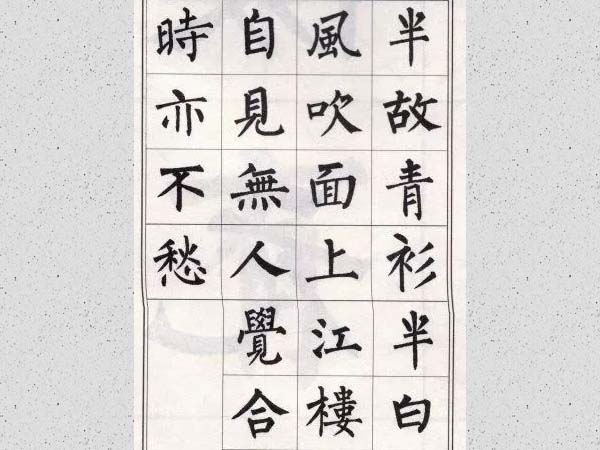 半故青衫半白
風吹面上江樓
自見無人覺合
時亦不愁